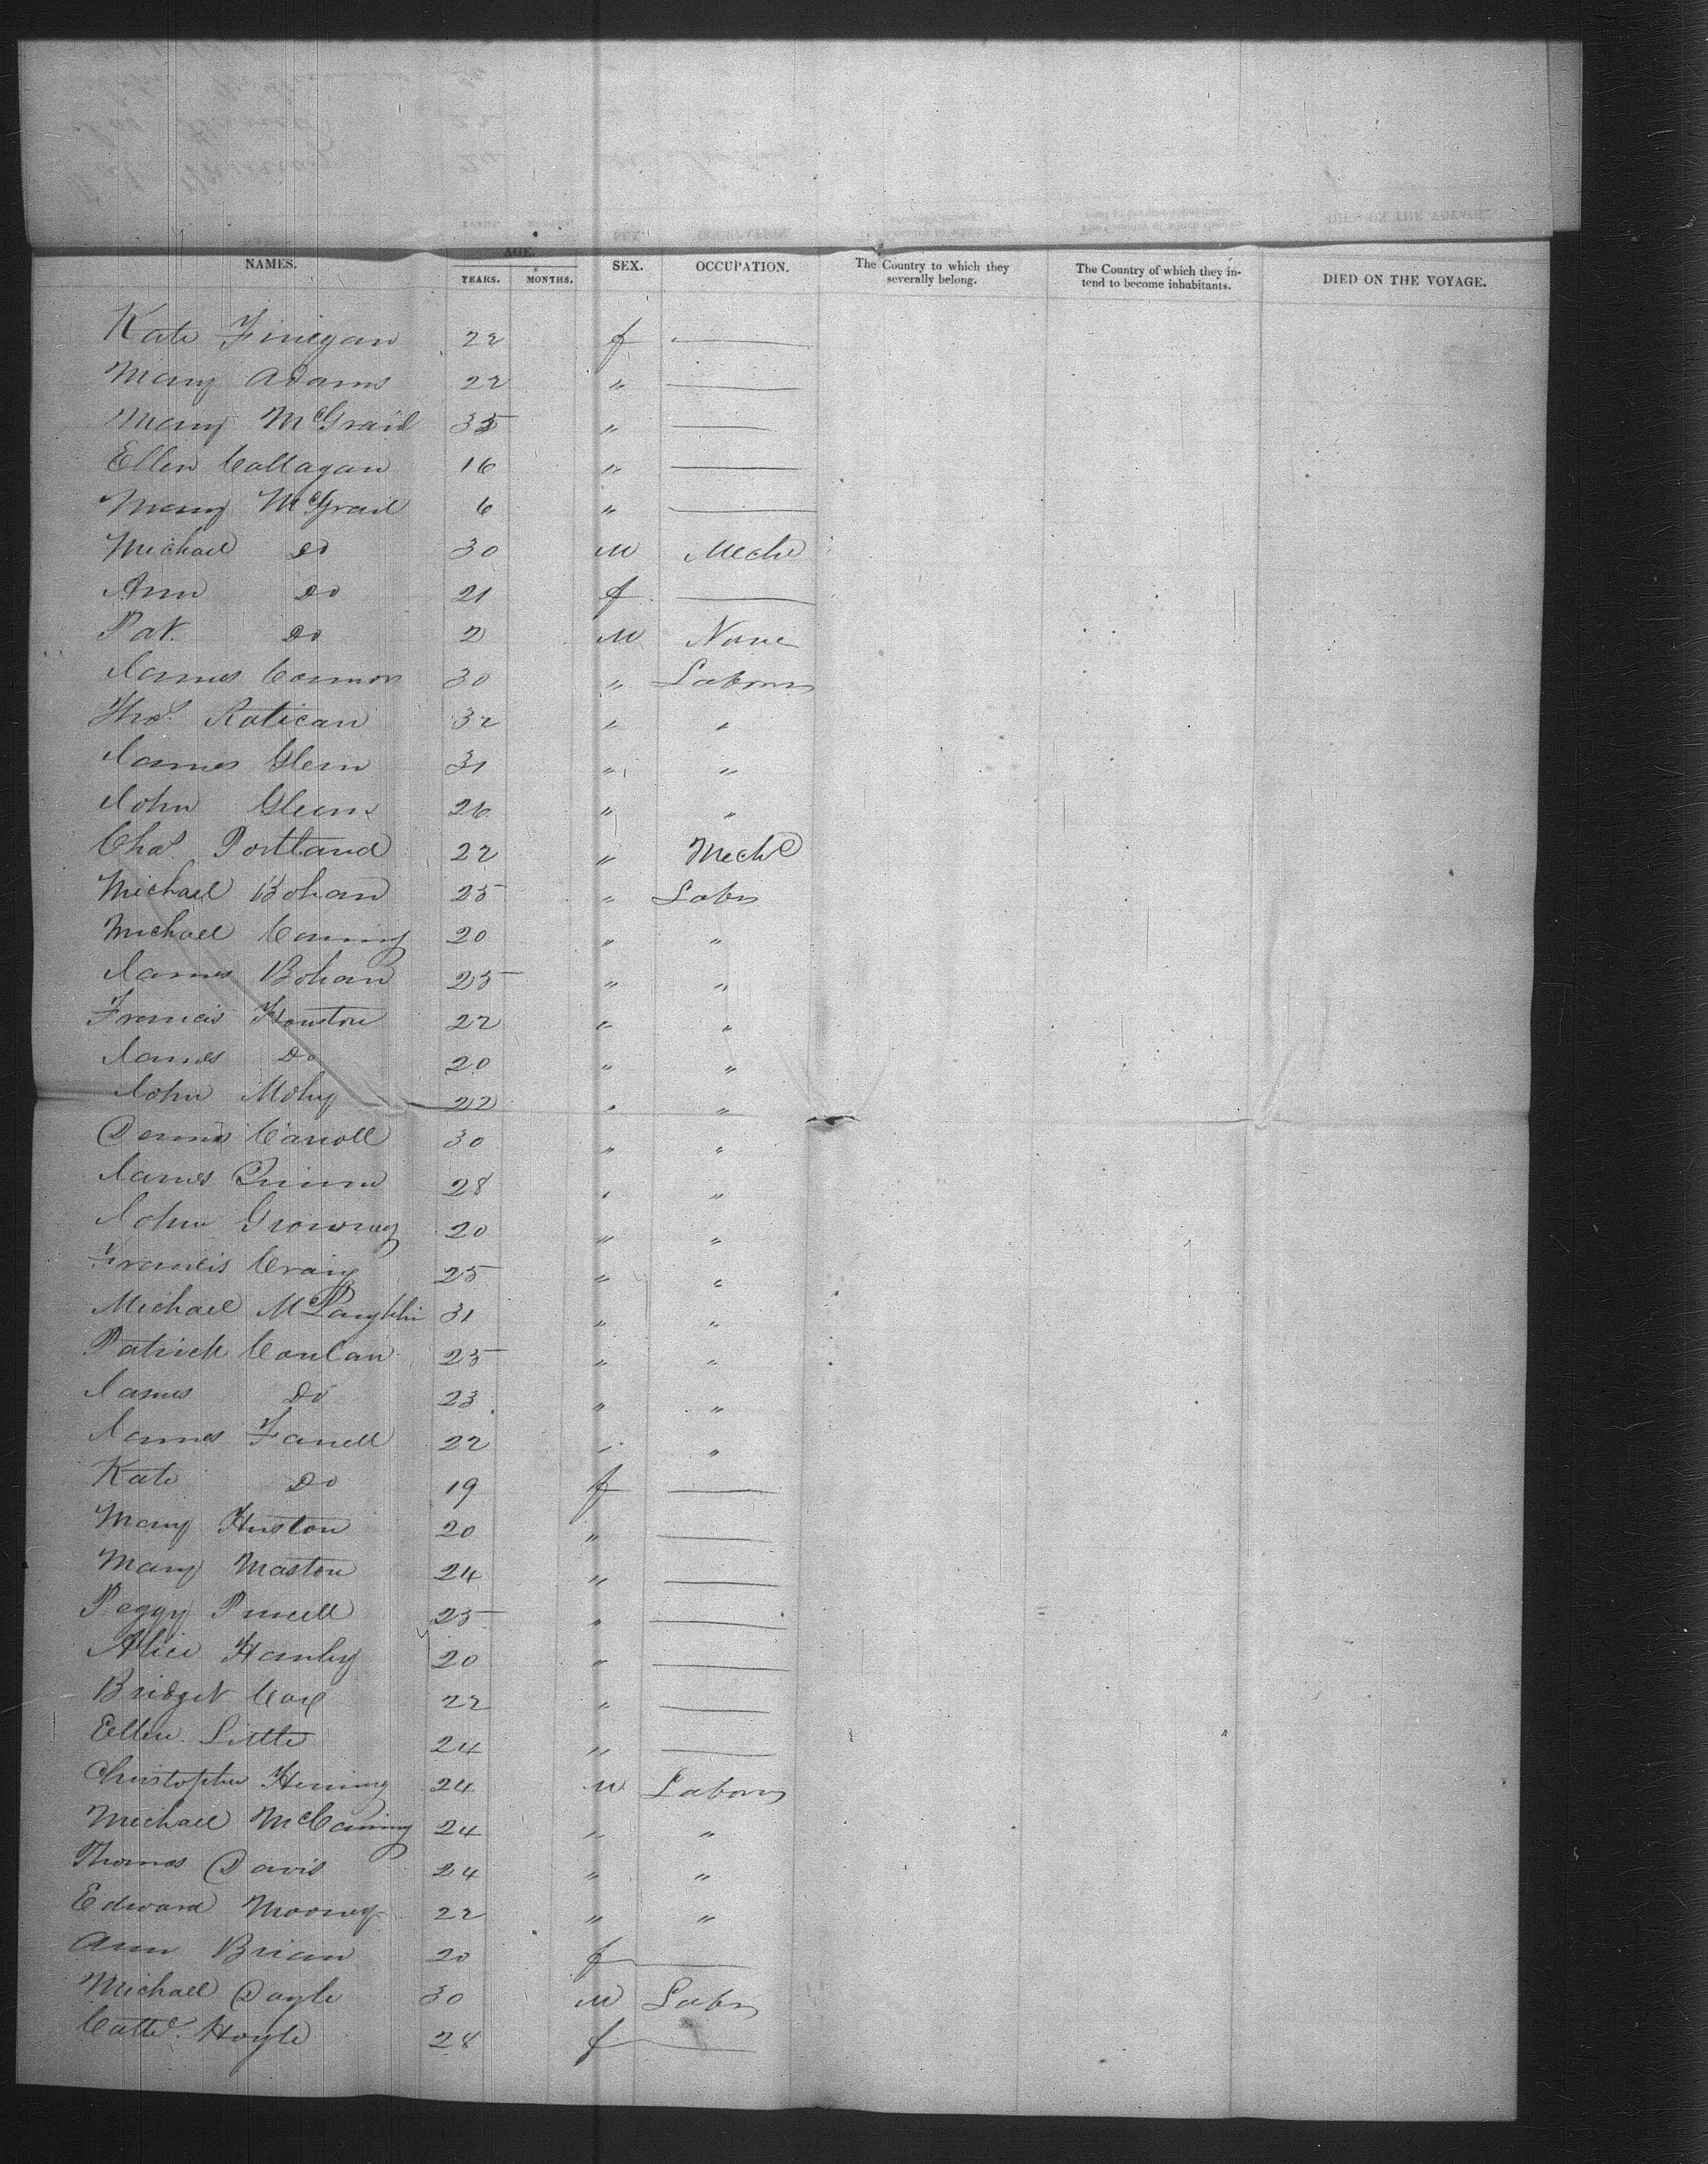 NAMES. AGE. YEARS. MONTHS. SEX. OCCUPATION. The Country to which they severally belong. The Country of which they intend to become inhabitants. DIED ON THE VOYAGE.
Kate Finegan 22 f —
Mary Adams 22 " —
Mary McGrail 35 " —
Ellen Callagan 16 " —
Mary McGrail 6 " —
Michael Do 30 M Mech
Ann Do 21 f —
Pat. Do 2 M None
James Connor 30 " Laborer
Thos. Ratican 32 " "
James Glenn 31 " "
John Glenn 26 " "
Chas. Portland 22 " Mech
Michael Bohan 25 " Labr
Michael Canning 20 " "
James Bohan 25 " "
Francis Houston 22 " "
James Do 20 " "
John Mohy 22 " "
Dennis Carroll 30 " "
James Quinn 28 " "
John Growney 20 " "
Francis Craig 25 " "
Michael McLaughlin 31 " "
Patrick Conlan 25 " "
James Do 23 " "
James Farrell 22 " "
Kate Do 19 f —
Mary Huston 20 " —
Mary Maston 24 " —
Peggy Purcell 25 " —
Alice Hanley 20 " —
Bridget Cox 22 " —
Ellen Little 24 " —
Christopher Hening 24 M Laborer
Michael McCanning 24 " "
Thomas Davis 24 " "
Edward Mooney 22 " "
Ann Brian 20 f —
Michael Doyle 30 M Labr
Cathe. Hoyle 28 f —